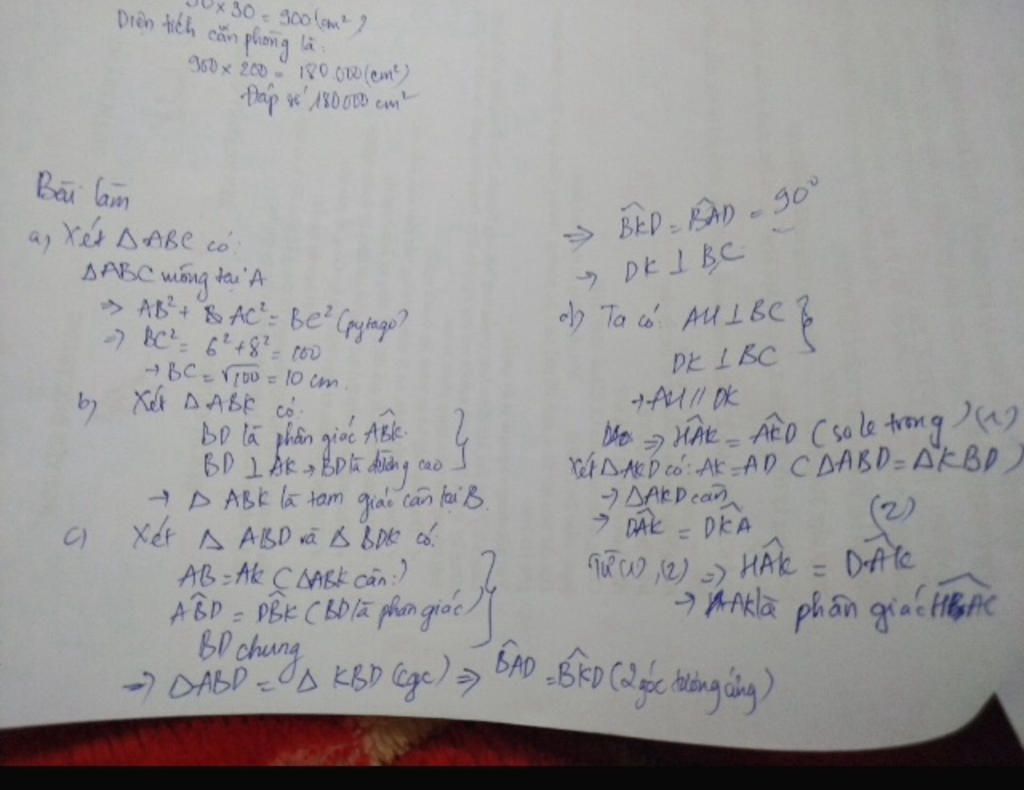 30 × 30 = 900 (cm²)
Diện tích căn phòng là:
900 × 200 = 180.000 (cm²)
Đáp số 180000 cm²
Bài làm
a) Xét △ABC có:
△ABC vuông tại A
⇒ AB² + AC² = BC² (pytago)
⇒ BC² = 6² + 8² = 100
→ BC = √100 = 10 cm.
b) Xét △ABK có:
BD là phân giác ABK̂
BD ⊥ AK → BD là đường cao
→ △ ABK là tam giác cân tại B.
c) Xét △ ABD và △ BDK có:
AB = AK (△ABK cân)
AB̂D = DB̂K (BD là phân giác)
BD chung
⇒ △ABD = △ KBD (cgc) ⇒ B̂AD = BK̂D (2 góc tương ứng)
⇒ BK̂D = BÂD = 90°
→ DK ⊥ BC
d) Ta có: AH ⊥ BC
DK ⊥ BC
→ AH // DK
⇒ HÂK = AK̂D (so le trong) (1)
Xét △AKD có: AK = AD (△ABD = △KBD)
→ △AKD cân
→ DÂK = DK̂A (2)
Từ (1), (2) ⇒ HÂK = DÂK
→ AK là phân giác HAC